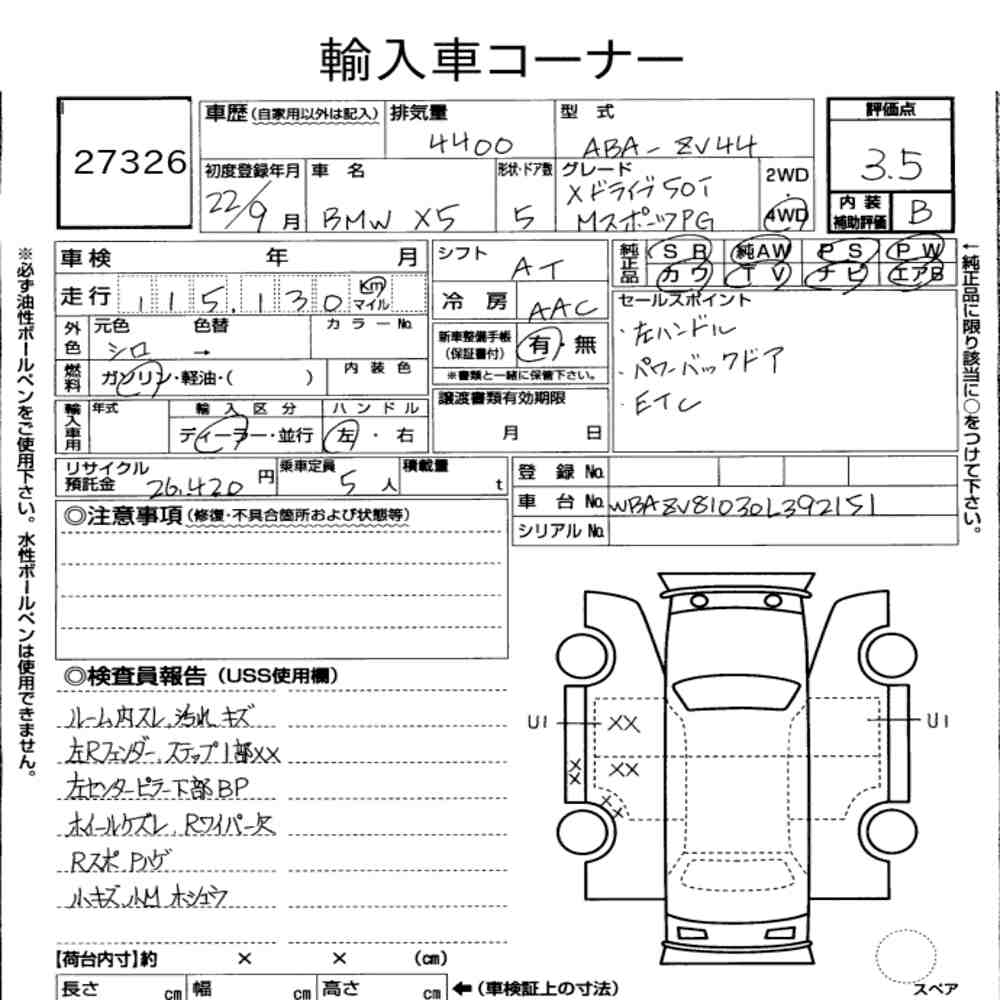 輸入車コーナー
27326
車歴(自家用以外は記入)
排気量
4400
型式
ABA-ZV44
評価点
3.5
初度登録年月
22/9月
車名
BMW X5
形状・ドア数
5
グレード
Xドライブ50i
MスポーツPG
2WD
・
4WD
内装
補助評価
B
車検 年 月
シフト
AT
純正品
SR 純AW PS PW
カワ TV ナビ エアB
走行
115,130
Km
マイル
冷房
AAC
セールスポイント
・左ハンドル
・パワーバックドア
・ETC
外色
元色 色替
シロ →
カラーNo.
新車整備手帳
(保証書付)
有・無
※書類と一緒に保管下さい。
燃料
ガソリン・軽油・( )
内装色
輸入車用
年式
輸入区分
ディーラー・並行
ハンドル
左・右
譲渡書類有効期限
月 日
リサイクル
預託金
26,420円
乗車定員
5人
積載量
t
登録No.
車台No.
WBAZV81030L392151
シリアルNo.
◎注意事項(修復・不具合箇所および状態等)
◎検査員報告(USS使用欄)
ルーム内スレ、汚れ、キズ
左Rフェンダー、ステップ1部XX
左センターピラー下部BP
ホイールケズレ、Rワイパー欠
Rスポ Pハゲ
小キズ、小M ホシュウ
U1 XX U1
XX
XX
XX
【荷台内寸】約 × × (cm)
長さ cm 幅 cm 高さ cm
←(車検証上の寸法)
スペア
※必ず油性ボールペンをご使用下さい。水性ボールペンは使用できません。
←純正品に限り該当に○をつけて下さい。